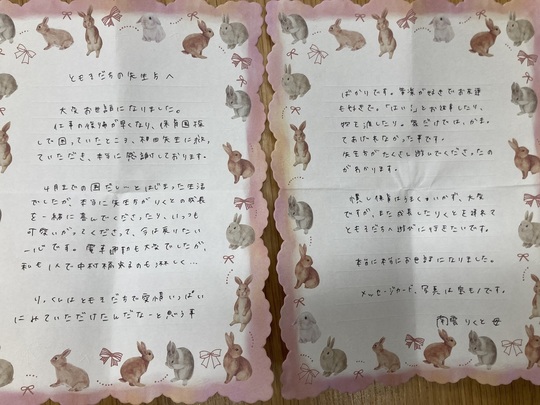 ともそだちの先生方へ
大変お世話になりました。
仕事の復帰が早くなり、保育園探
しで困っていたところ、和田先生に救っ
ていただき、本当に感謝しております。
4月までの園だしーとはじまった生活
でしたが、本当に先生方がりくとの成長
を一緒に喜んでくださったり、いっつも
可愛いがってくださって、今は戻りたい
一心です。電車通勤も大変でしたが、
私も1人で中村橋来るのもう淋しく…
りっくんはともそだちで愛情いっぱい
にみていただけたんだなーと思う事
ばかりです。音楽が好きでお友達
も好きで。「はい!」とお仕事したり、
物で渡したり。家だけでは、かまっ
てあげれなかった事です。
先生方がたくさん遊んでくださったの
がわかります。
慣し保育はうまくいかず、大変
ですが、また成長したりくとを連れて
ともそだちへ遊びに行きたいです。
本当に本当にお世話になりました。
メッセージカード、写真は宝モノです。
りくと 母